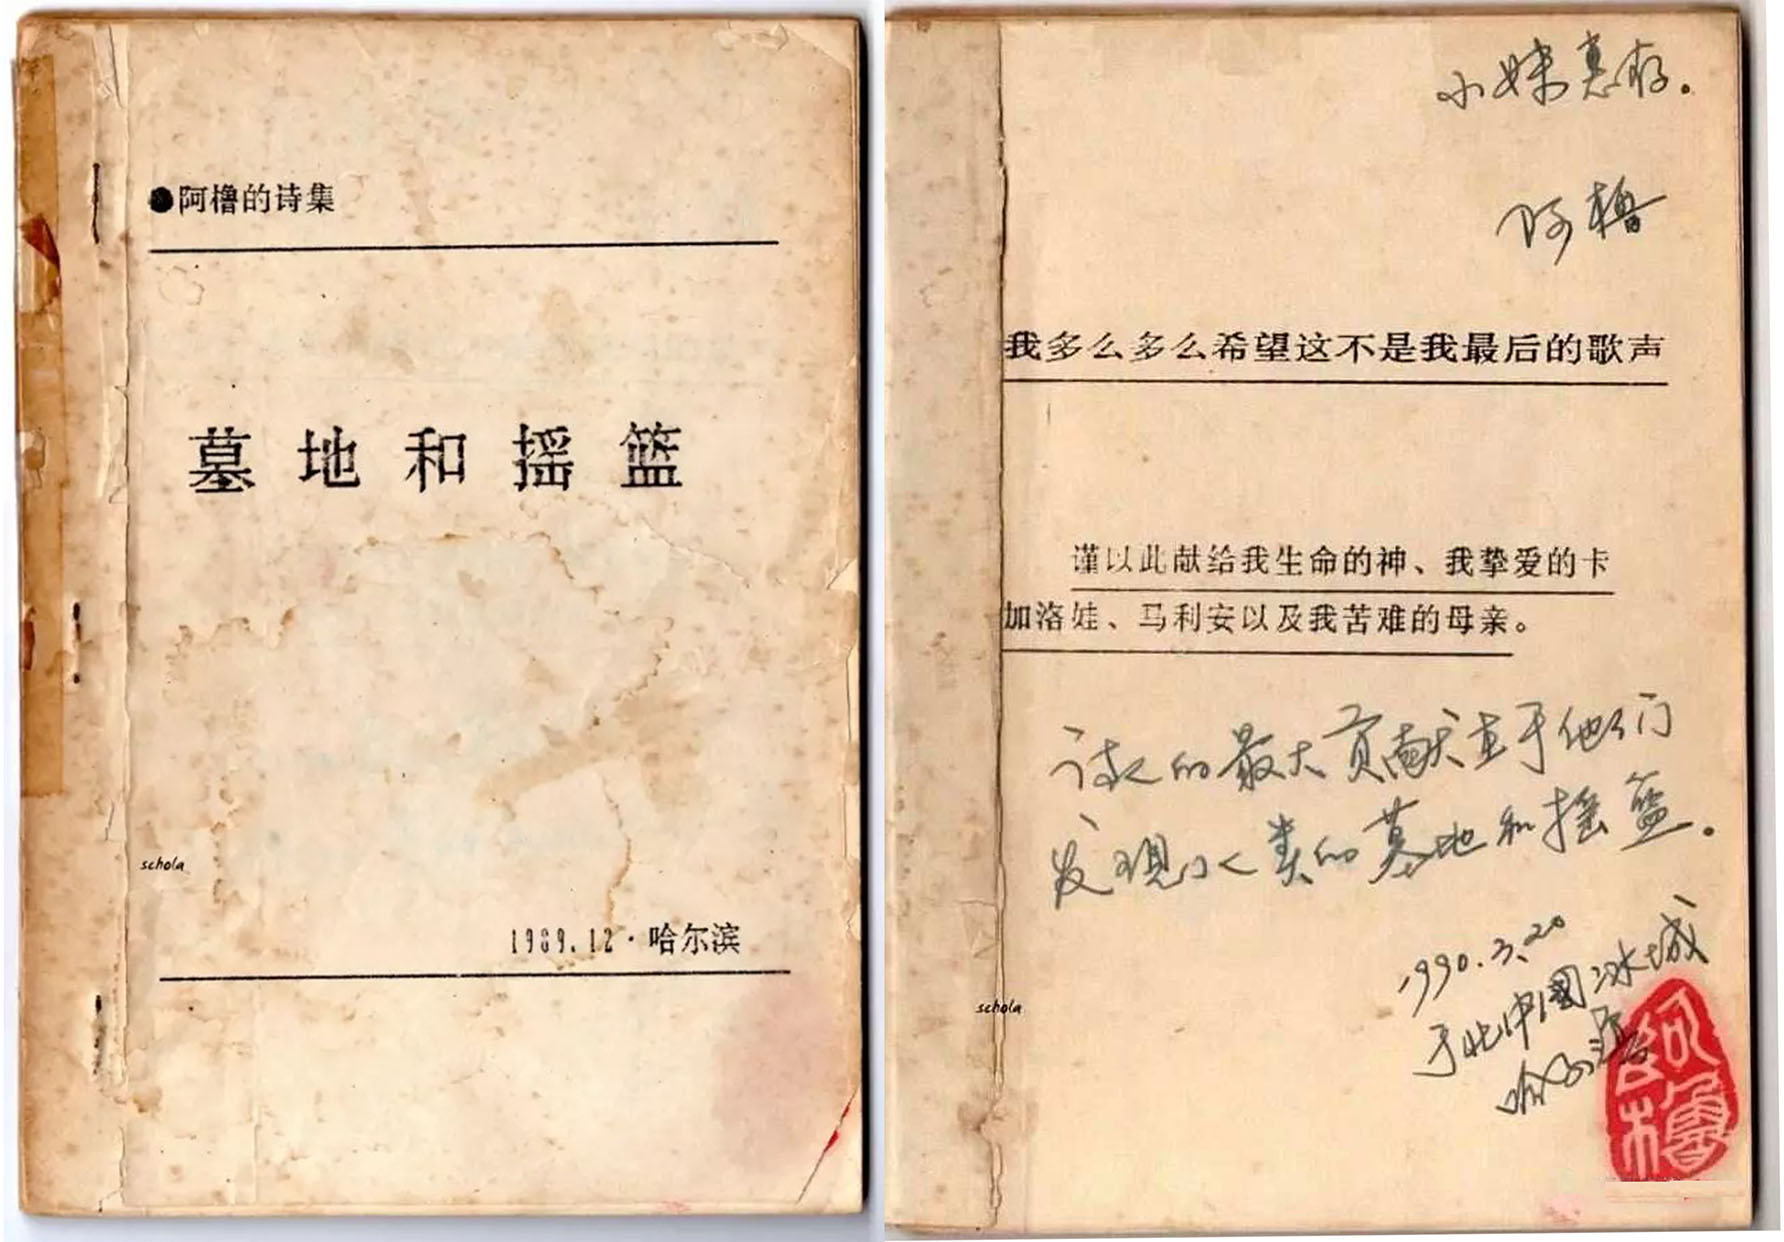 ●阿橹的诗集
墓地和摇篮
schola
1989.12·哈尔滨
小妹惠存。
阿橹
我多么多么希望这不是我最后的歌声
谨以此献给我生命的神、我挚爱的卡
加洛娃、马利安以及我苦难的母亲。
诗人的最大贡献在于他们
发现了人类的墓地和摇篮。
1990.3.20
于北中国冰城
schola
哈尔滨
阿橹